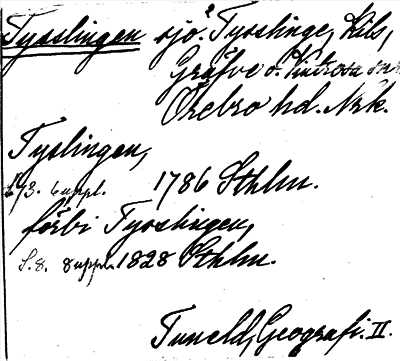 Tysslingen sjö. Tysslinge, Kils,
Gräfve o. Vintrosa snr
Örebro hd. Nrk.
Tyslingen,
s. 173. 6 uppl. 1786 Sthlm.
förbi Tysslingen,
S. 8. 8 uppl. 1828 Sthlm.
Tuneld, Geografi. II.